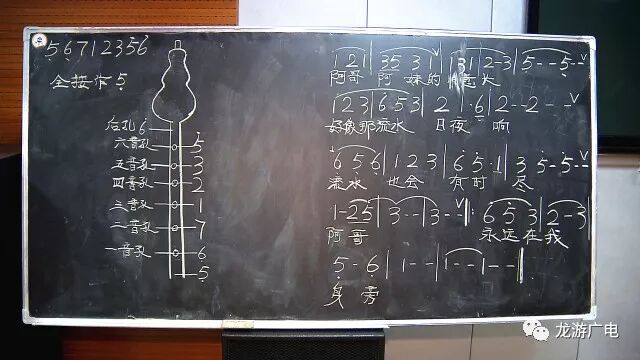 5 6 7 1 2 3 5 6
全按作5
后孔 6
六音孔 5
五音孔 3
四音孔 2
三音孔 1
二音孔 7
一音孔 6
5
1 2 1 | 3 5 3 1 | 1 3 1 | 2 - 3 | 5 - - 5 - -
阿哥 阿 妹的 意头
1 2 3 | 6 5 3 | 2 1 6 | 2 - - 2 - - -
好像那流水 日夜 响
6 5 6 | 1 2 3 | 6 5 1 | 3 5 - 5 - -
流水 也会 有时 尽
1 - 2 5 | 3 - - | 3 - - :| 6 5 3 | 2 - 3 |
阿哥 永远在我
5 - 6 | 1 - - | 1 - - 1 - - ||
身 旁
龙游广电